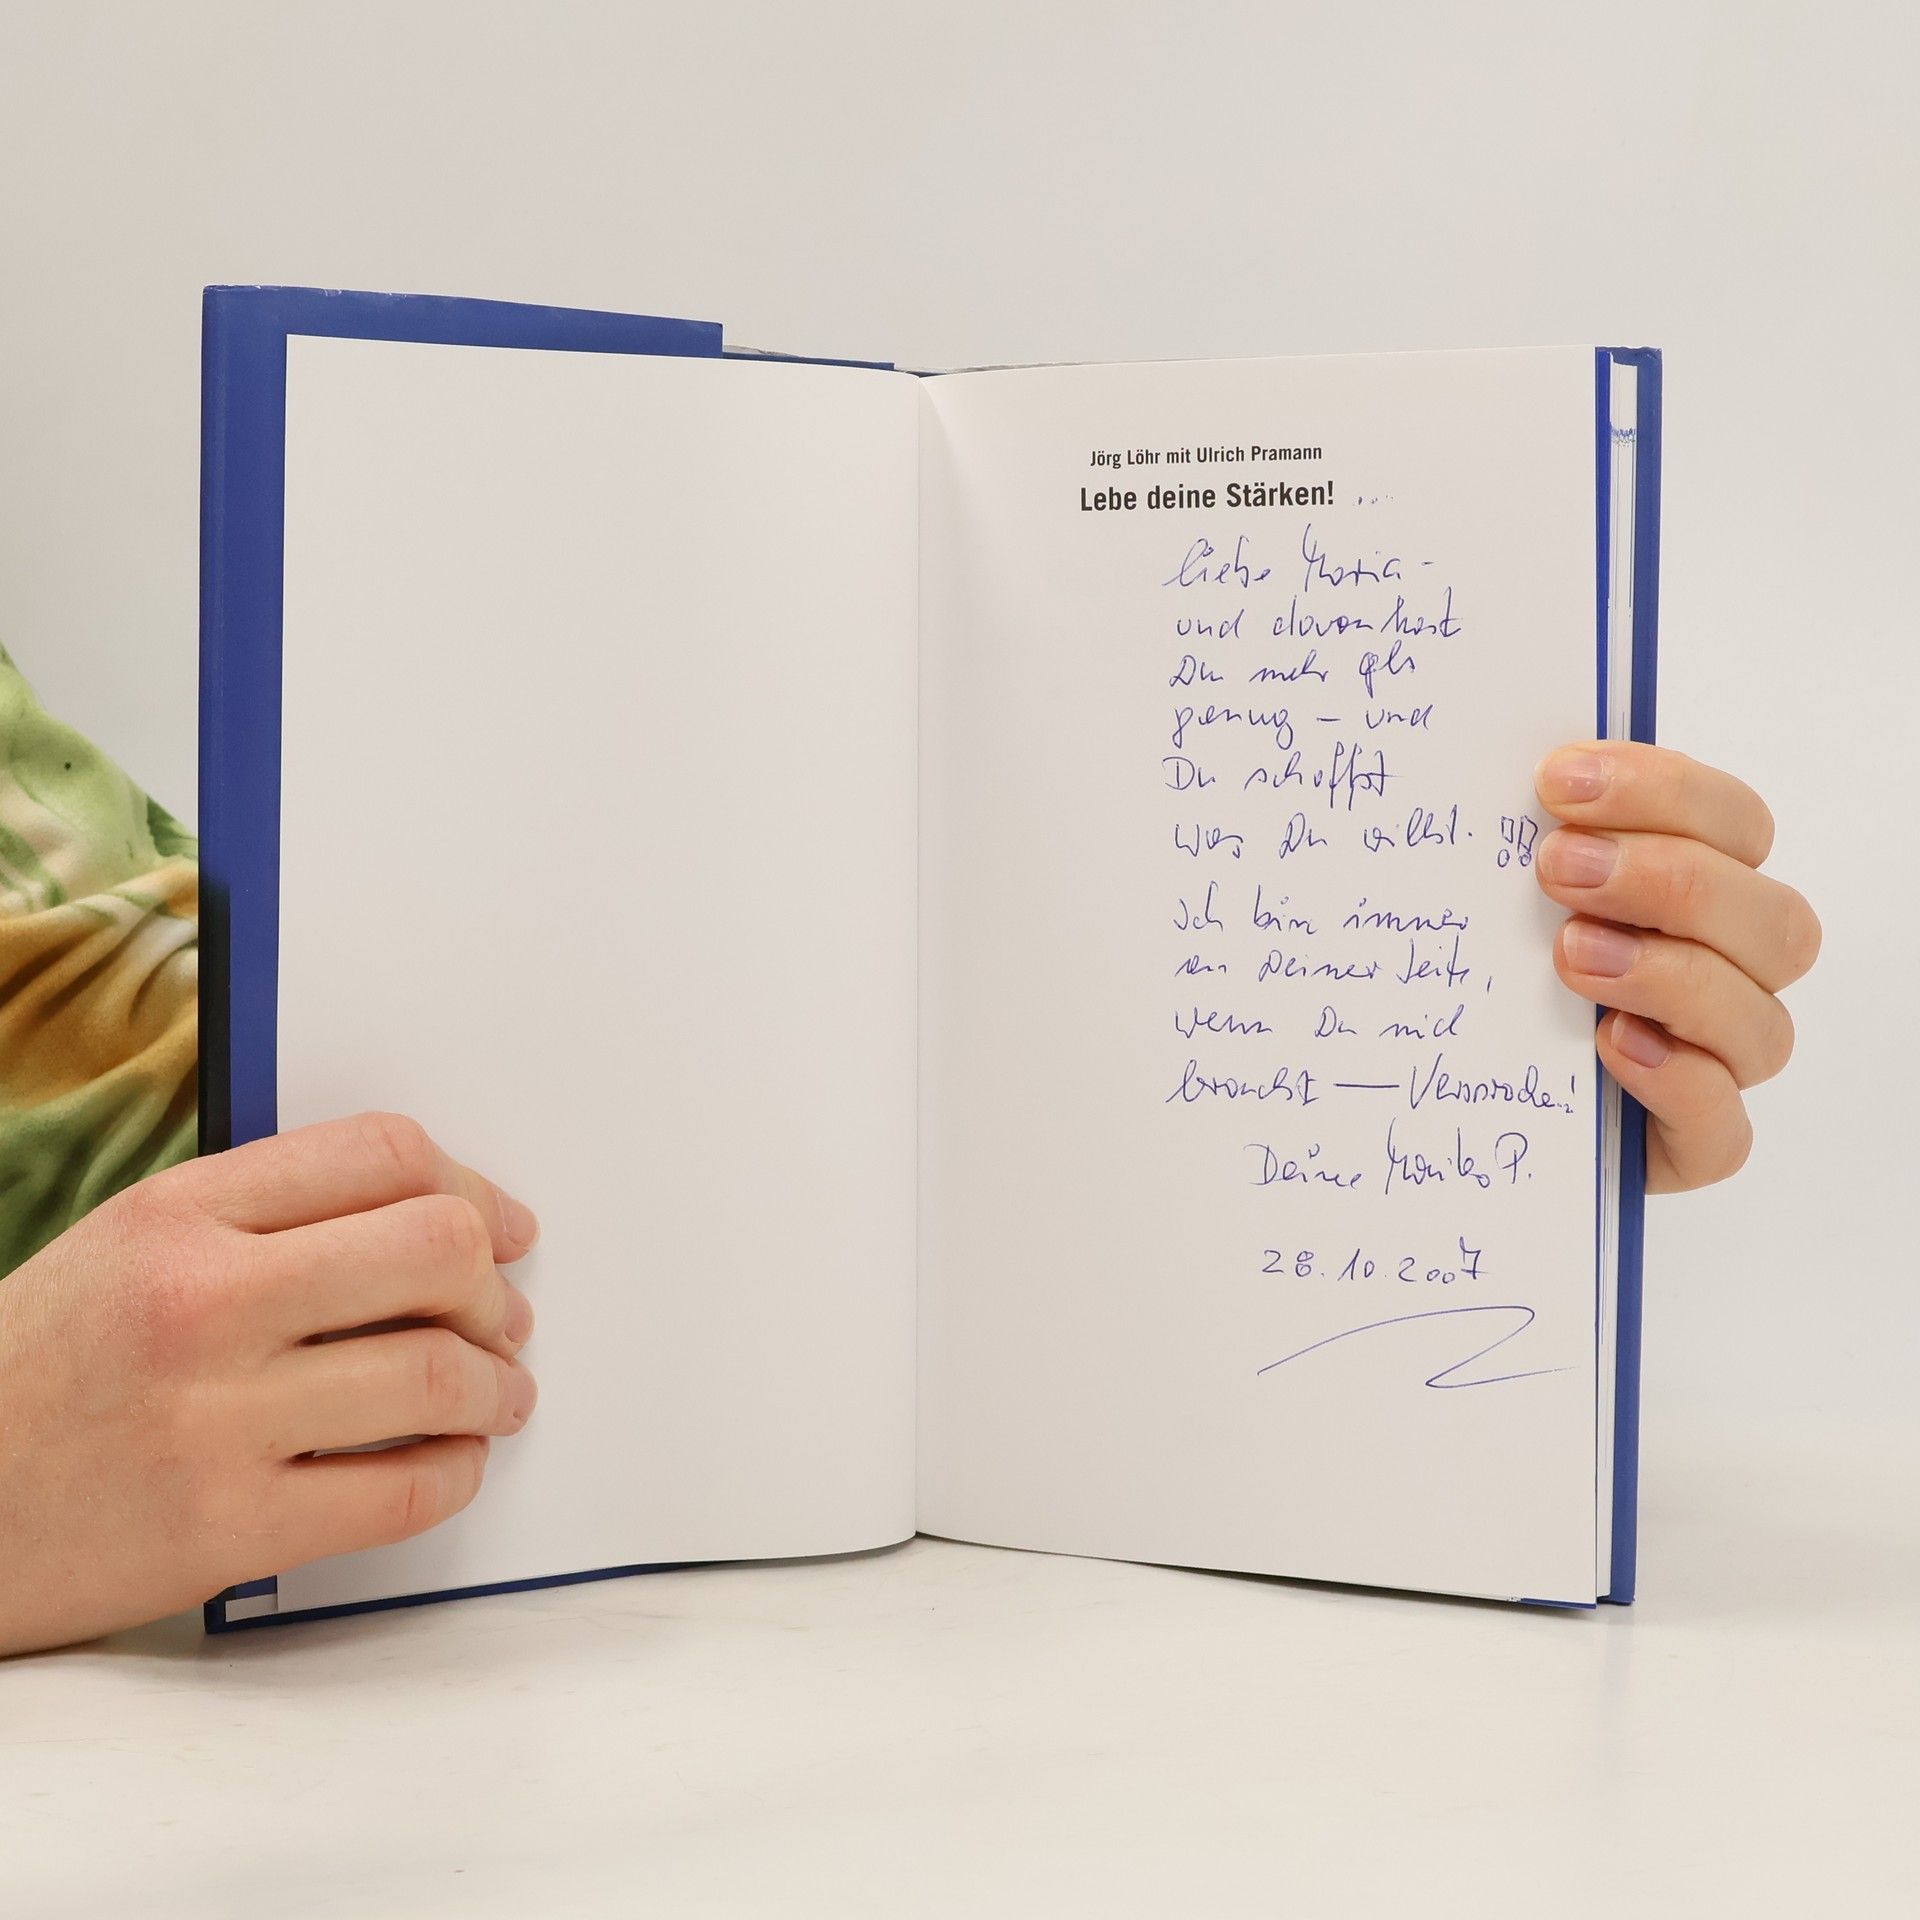 Jörg Löhr mit Ulrich Pramann
Lebe deine Stärken! ...
Liebe Maria -
und davon hast
Du mehr als
genug - und
Du schaffst
was Du willst. !!
Ich bin immer
an Deiner Seite,
wenn Du mich
brauchst — Versprochen!
Deine P.
28.10.2007